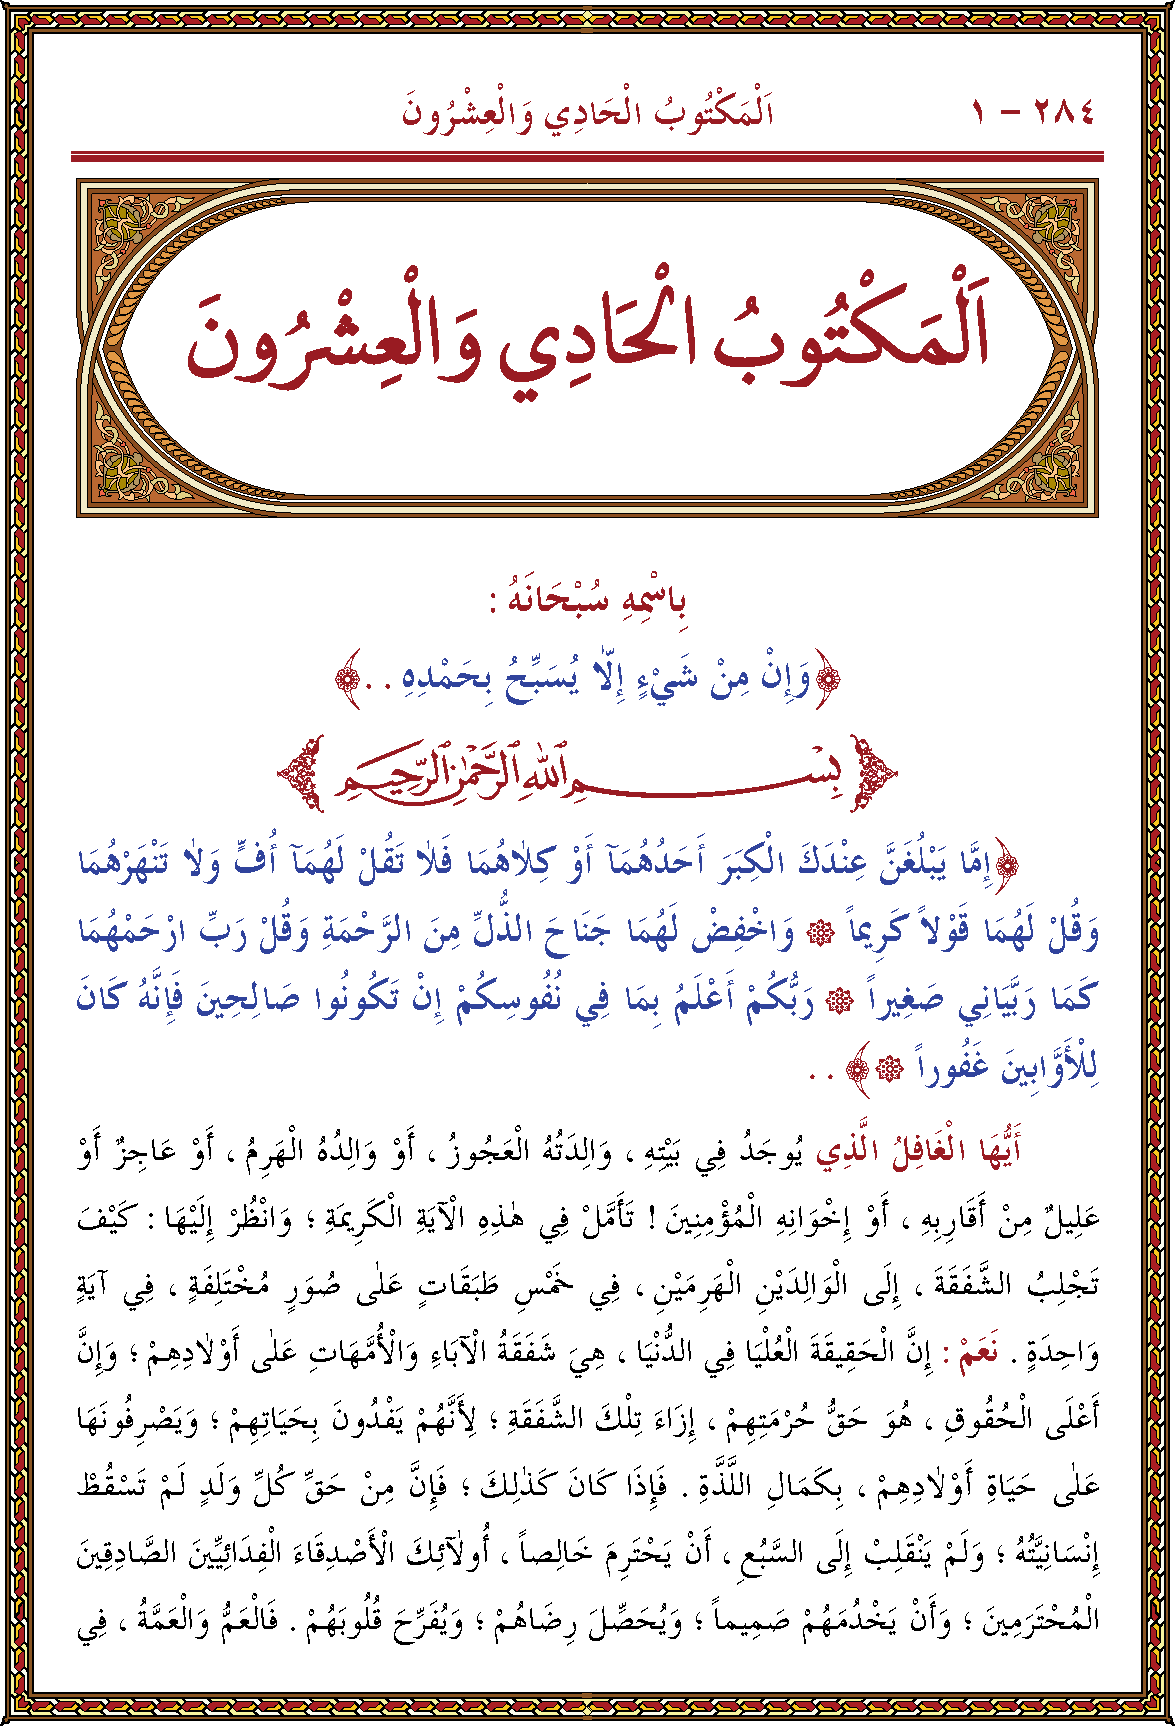 ٢٨٤ – ١ اَلْمَكْتُوبُ الْحَادِي وَالْعِشْرُونَ
اَلْمَكْتُوبُ الْحَادِي وَالْعِشْرُونَ
بِاسْمِهِ سُبْحَانَهُ :
﴿وَإِنْ مِنْ شَيْءٍ إِلَّا يُسَبِّحُ بِحَمْدِهِ . . ﴾
بِسْمِ اللهِ الرَّحْمٰنِ الرَّحِيمِ
﴿إِمَّا يَبْلُغَنَّ عِنْدَكَ الْكِبَرَ أَحَدُهُمَآ أَوْ كِلَاهُمَا فَلَا تَقُلْ لَهُمَآ أُفٍّ وَلَا تَنْهَرْهُمَا
وَقُلْ لَهُمَا قَوْلاً كَرِيماً ۞ وَاخْفِضْ لَهُمَا جَنَاحَ الذُّلِّ مِنَ الرَّحْمَةِ وَقُلْ رَبِّ ارْحَمْهُمَا
كَمَا رَبَّيَانِي صَغِيراً ۞ رَبُّكُمْ أَعْلَمُ بِمَا فِي نُفُوسِكُمْ إِنْ تَكُونُوا صَالِحِينَ فَإِنَّهُ كَانَ
لِلْأَوَّابِينَ غَفُوراً ۞﴾ . .
أَيُّهَا الْغَافِلُ الَّذِي يُوجَدُ فِي بَيْتِهِ ، وَالِدَتُهُ الْعَجُوزُ ، أَوْ وَالِدُهُ الْهَرِمُ ، أَوْ عَاجِزٌ أَوْ
عَلِيلٌ مِنْ أَقَارِبِهِ ، أَوْ إِخْوَانِهِ الْمُؤْمِنِينَ ! تَأَمَّلْ فِي هٰذِهِ الْآيَةِ الْكَرِيمَةِ ؛ وَانْظُرْ إِلَيْهَا : كَيْفَ
تَجْلِبُ الشَّفَقَةَ ، إِلَى الْوَالِدَيْنِ الْهَرِمَيْنِ ، فِي خَمْسِ طَبَقَاتٍ عَلٰى صُوَرٍ مُخْتَلِفَةٍ ، فِي آيَةٍ
وَاحِدَةٍ . نَعَمْ : إِنَّ الْحَقِيقَةَ الْعُلْيَا فِي الدُّنْيَا ، هِيَ شَفَقَةُ الْآبَاءِ وَالْأُمَّهَاتِ عَلٰى أَوْلَادِهِمْ ؛ وَإِنَّ
أَعْلَى الْحُقُوقِ ، هُوَ حَقُّ حُرْمَتِهِمْ ، إِزَاءَ تِلْكَ الشَّفَقَةِ ؛ لِأَنَّهُمْ يَفْدُونَ بِحَيَاتِهِمْ ؛ وَيَصْرِفُونَهَا
عَلٰى حَيَاةِ أَوْلَادِهِمْ ، بِكَمَالِ اللَّذَّةِ . فَإِذَا كَانَ كَذٰلِكَ ؛ فَإِنَّ مِنْ حَقِّ كُلِّ وَلَدٍ لَمْ تَسْقُطْ
إِنْسَانِيَّتُهُ ؛ وَلَمْ يَنْقَلِبْ إِلَى السَّبُعِ ، أَنْ يَحْتَرِمَ خَالِصاً ، أُولٰئِكَ الْأَصْدِقَاءَ الْفِدَائِيِّينَ الصَّادِقِينَ
الْمُحْتَرَمِينَ ؛ وَأَنْ يَخْدُمَهُمْ صَمِيماً ؛ وَيُحَصِّلَ رِضَاهُمْ ؛ وَيُفَرِّحَ قُلُوبَهُمْ . فَالْعَمُّ وَالْعَمَّةُ ، فِي